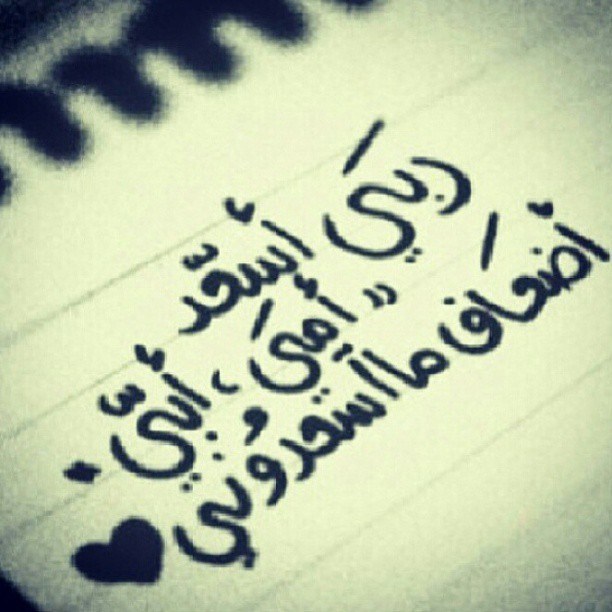 ربي أسعد
"أمي، أبي
أضعاف ما أسعدوني